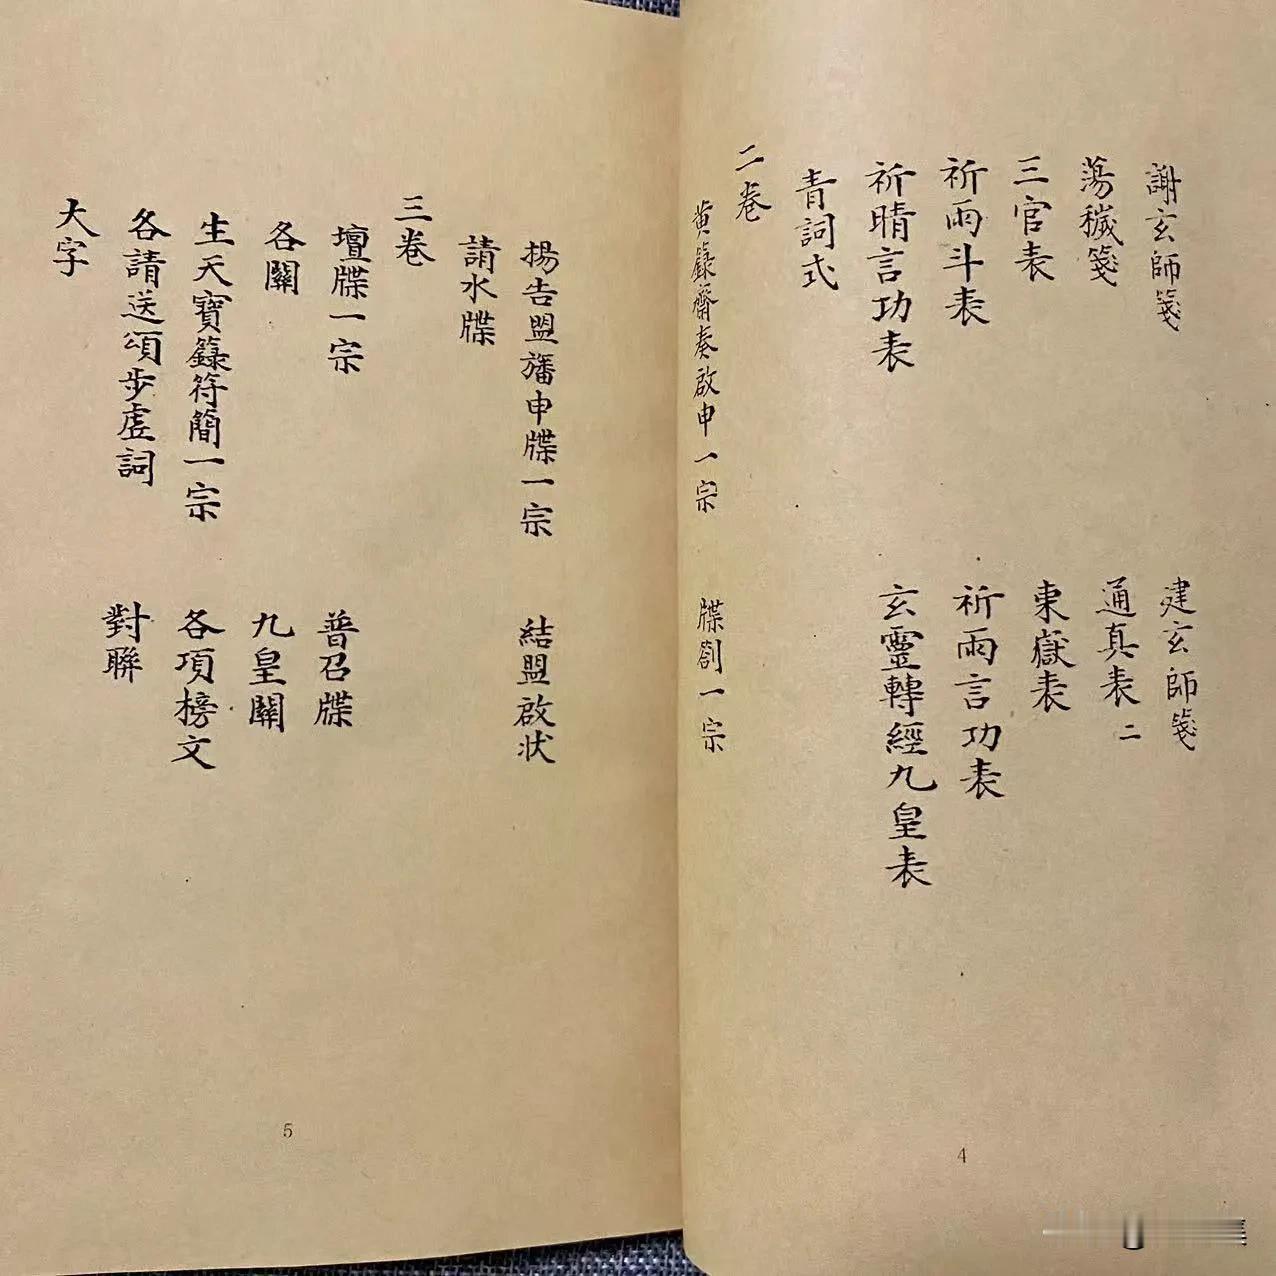 謝玄師箋 建玄師箋
蕩穢箋 通真表二
三官表 東嶽表
祈雨斗表 祈雨言功表
祈晴言功表 玄靈轉經九皇表
青詞式
二卷
黄籙齋奏啟申一宗 牒劄一宗
4
揚告盟旛申牒一宗 結盟啟状
請水牒
三卷
壇牒一宗 普召牒
各關 九皇關
生天寶籙符簡一宗 各項榜文
各請送頌步虛詞 對聯
大字
5